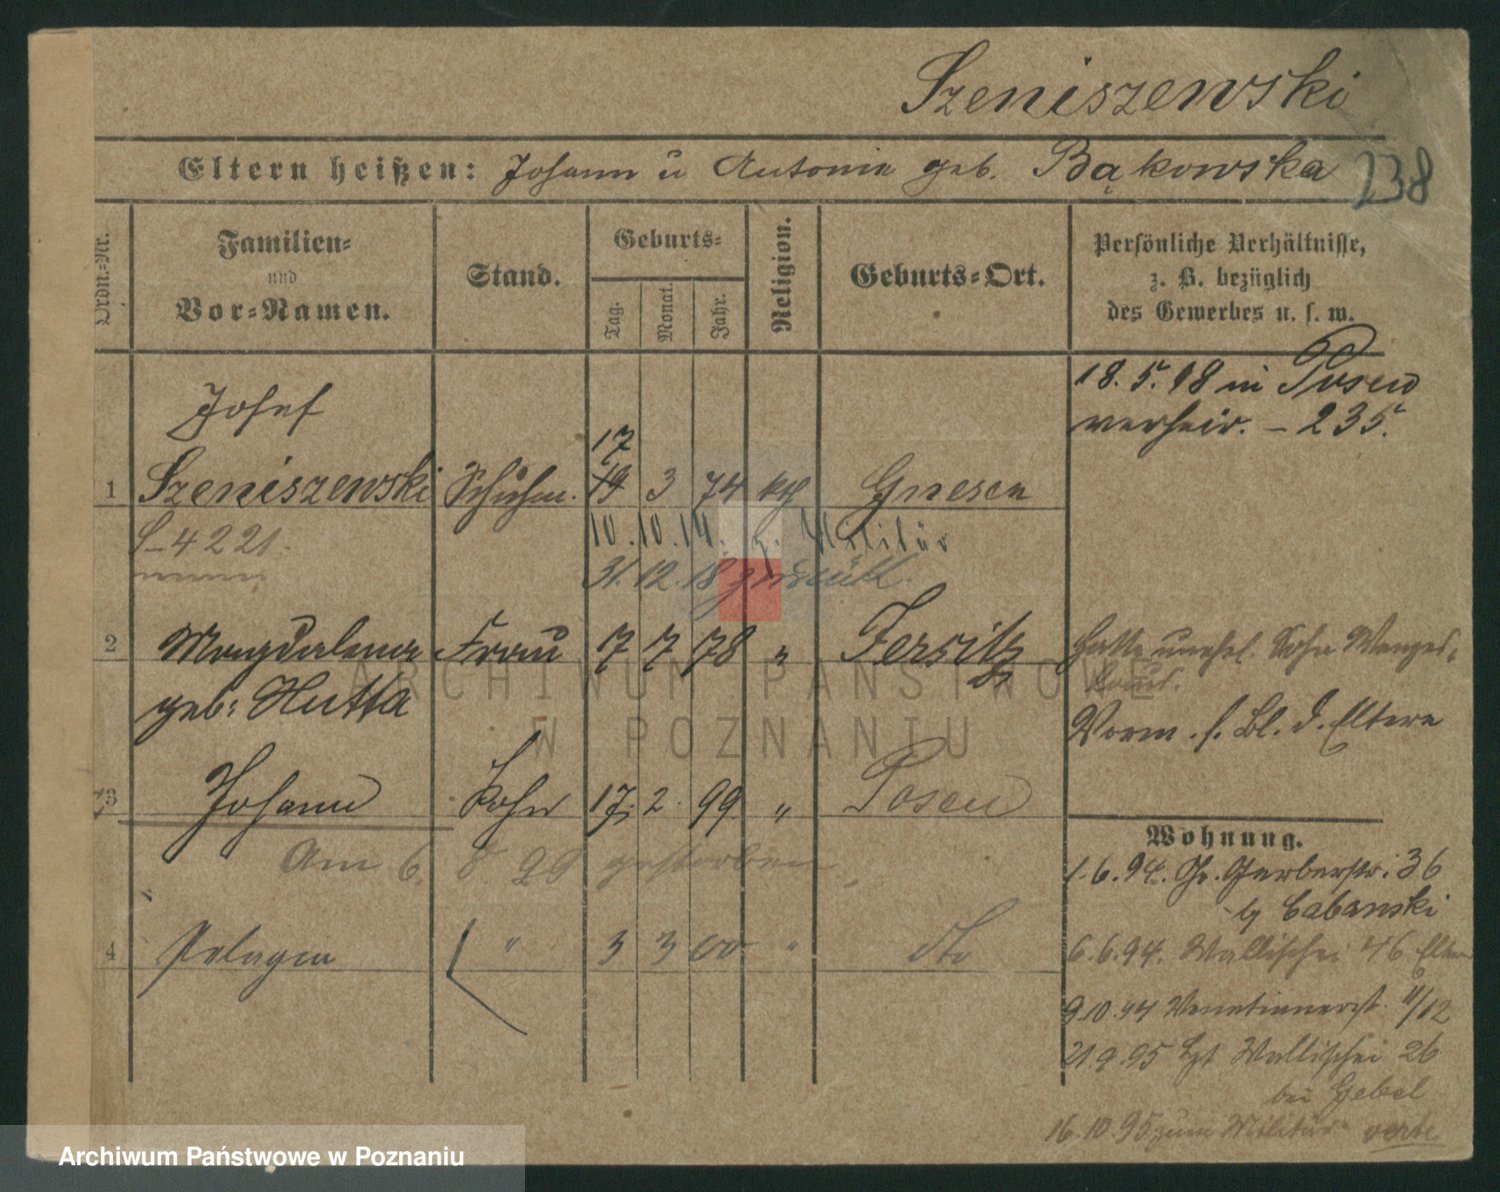 Szeniszewski
Eltern heißen: Johann u Antonie geb. Bąkowska 238
Ordn.-Nr.
Familien-
und
Vor-Namen.
Stand.
Geburts-
Tag. Monat. Jahr.
Religion.
Geburts-Ort.
Persönliche Verhältnisse,
z. B. bezüglich
des Gewerbes u. s. w.
18. 5. 98 in Posen
verheir. – 235.
Josef
17
1 Szeniszewski Schuhm. 19 3 74 kth Gnesen
S-4221.
10. 10. 14. z. Militär
31. 12. 18 zurück
2 Magdalena Frau 7 7 78 " Jersitz
geb: Hutta
Hatte unehel. Sohn
Vorm. s. Bl. d. Eltern
3 Johann Sohn 17. 2. 99 " Posen
Am 6. 8 99 gestorben
4 Pelagia " 3 3 00 " dto
Wohnung.
1. 6. 94. Gr. Gerberstr. 36
by Cabanski
6. 6. 94. Wallischei 46 Eltern
9. 10. 94 Venetianerst. 11/12
21. 9. 95 Wallischei 26
bei Gebel
16. 10. 95 zum Militär verte
ARCHIWUM PAŃSTWOWE
W POZNANIU
Archiwum Państwowe w Poznaniu